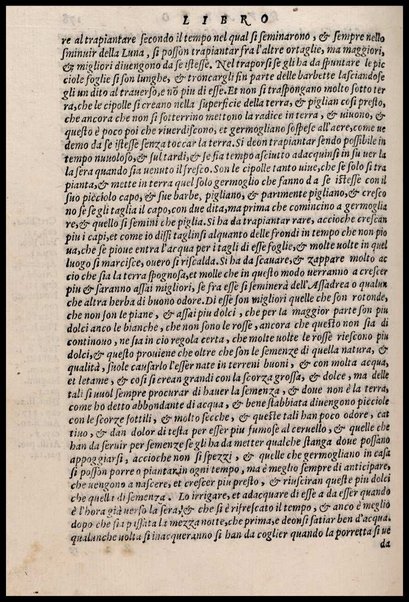 LIBRO
re al trapiantare secondo il tempo nel qual si seminarono, & sempre nello
sminuir della Luna, si posson trapiantar fra l'altre ortaglie, ma maggiori,
& migliori diuengono da se istesse. Nel traporsi se gli ha da spuntare le pic
ciole foglie si son lunghe, & troncargli sin parte delle barbette lasciandose
gli un dito al trauerso, e nō piu di esse. Et non si traspongano molto sotto ter
ra, che le cipolle si creano nella superficie della terra, & piglian cosi presto,
che ancora che non si sotterrino mettono la radice in terra, & uiuono, &
questo è poco poi che riuerdiscono, et germogliano sospese all'aere, come ue
demo da se istesse senza toccar la terra. Si deon trapiantar sendo possibile in
tempo nuuoloso, & sul tardi, & se sia tempo asciutto adacquinsi in su uer la
la sera quando sia uenuto il fresco. Son le cipolle tanto uiue, che se solo si tra
pianta, & mette in terra quel solo germoglio che fanno da se istesse con il
suo picciolo capo, & sue barbe, pigliano, & parimente pigliano, & cresco
no se se gli taglia il capo, con due dita, ma prima che comincino a germoglia
re, & quello si semini che piglia. Si hà da trapiantar rare, accioche crescan
piu i capi, et come io dissi taglinsi alquanto delle frondi in tempo che non pio
ua, che se pioue entra l'acqua per i tagli di esse foglie, & molte uolte in quel
luogo si marcisce, ouero si riscalda. Si ha da scauare, & zappare molto ac
cio che sia la terra spognosa, et molle che in questo modo uerranno a crescer
piu & saranno assai migliori, se fra esse si seminerà dell'Assadrea o qualun
che altra herba di buono odore. Di esse son migliori quelle che son rotonde,
che non son le piane, & assai piu dolci, che per la maggior parte son piu
dolci anco le bianche, che non sono le rosse, ancora che questo non sia di
continouo, ne sia in cio regola certa, che molte uolte le rosse riescono piu
dolci, & questo prouiene che oltre che son le semenze di quella natura, &
qualità, suole causarlo l'esser nate in terreni buoni, & con molta acqua,
et letame, & cosi si crean grandi con la scorza grossa, & dolce, ma delle
tali si uuol sempre procurar di hauer la semenza, & doue non è la terra,
come ho detto abbondante di acqua, & bene stabbiata diuengono picciole
con le scorze sottili, & molto secche, & queste tali han poco odore, cat
tiuo, & dan dolor di testa per esser piu fumose al ceruello, & quelle che
han da seruir per semenze se gli ha da metter qualche stanga doue possano
appoggiarsi, accioche non si spezzi, & quelle che germogliano in casa
si posson porre o piantar in ogni tempo, ma è meglio sempre di anticipare,
che uengono a nascere, et crescer piu presto, & riusciran queste piu dolci
che quelle di semenza. Lo irrigare, et adacquare di esse a da esser quando
è l'hora già uerso la sera, & che si è rifrescato il tempo, & anco è meglio
dopo che sia passata la mezza notte, che prima, e deonsi satiar ben d'acqua,
qualunche uolta si inacqueranno si han da coglier quando la porretta si ue
da